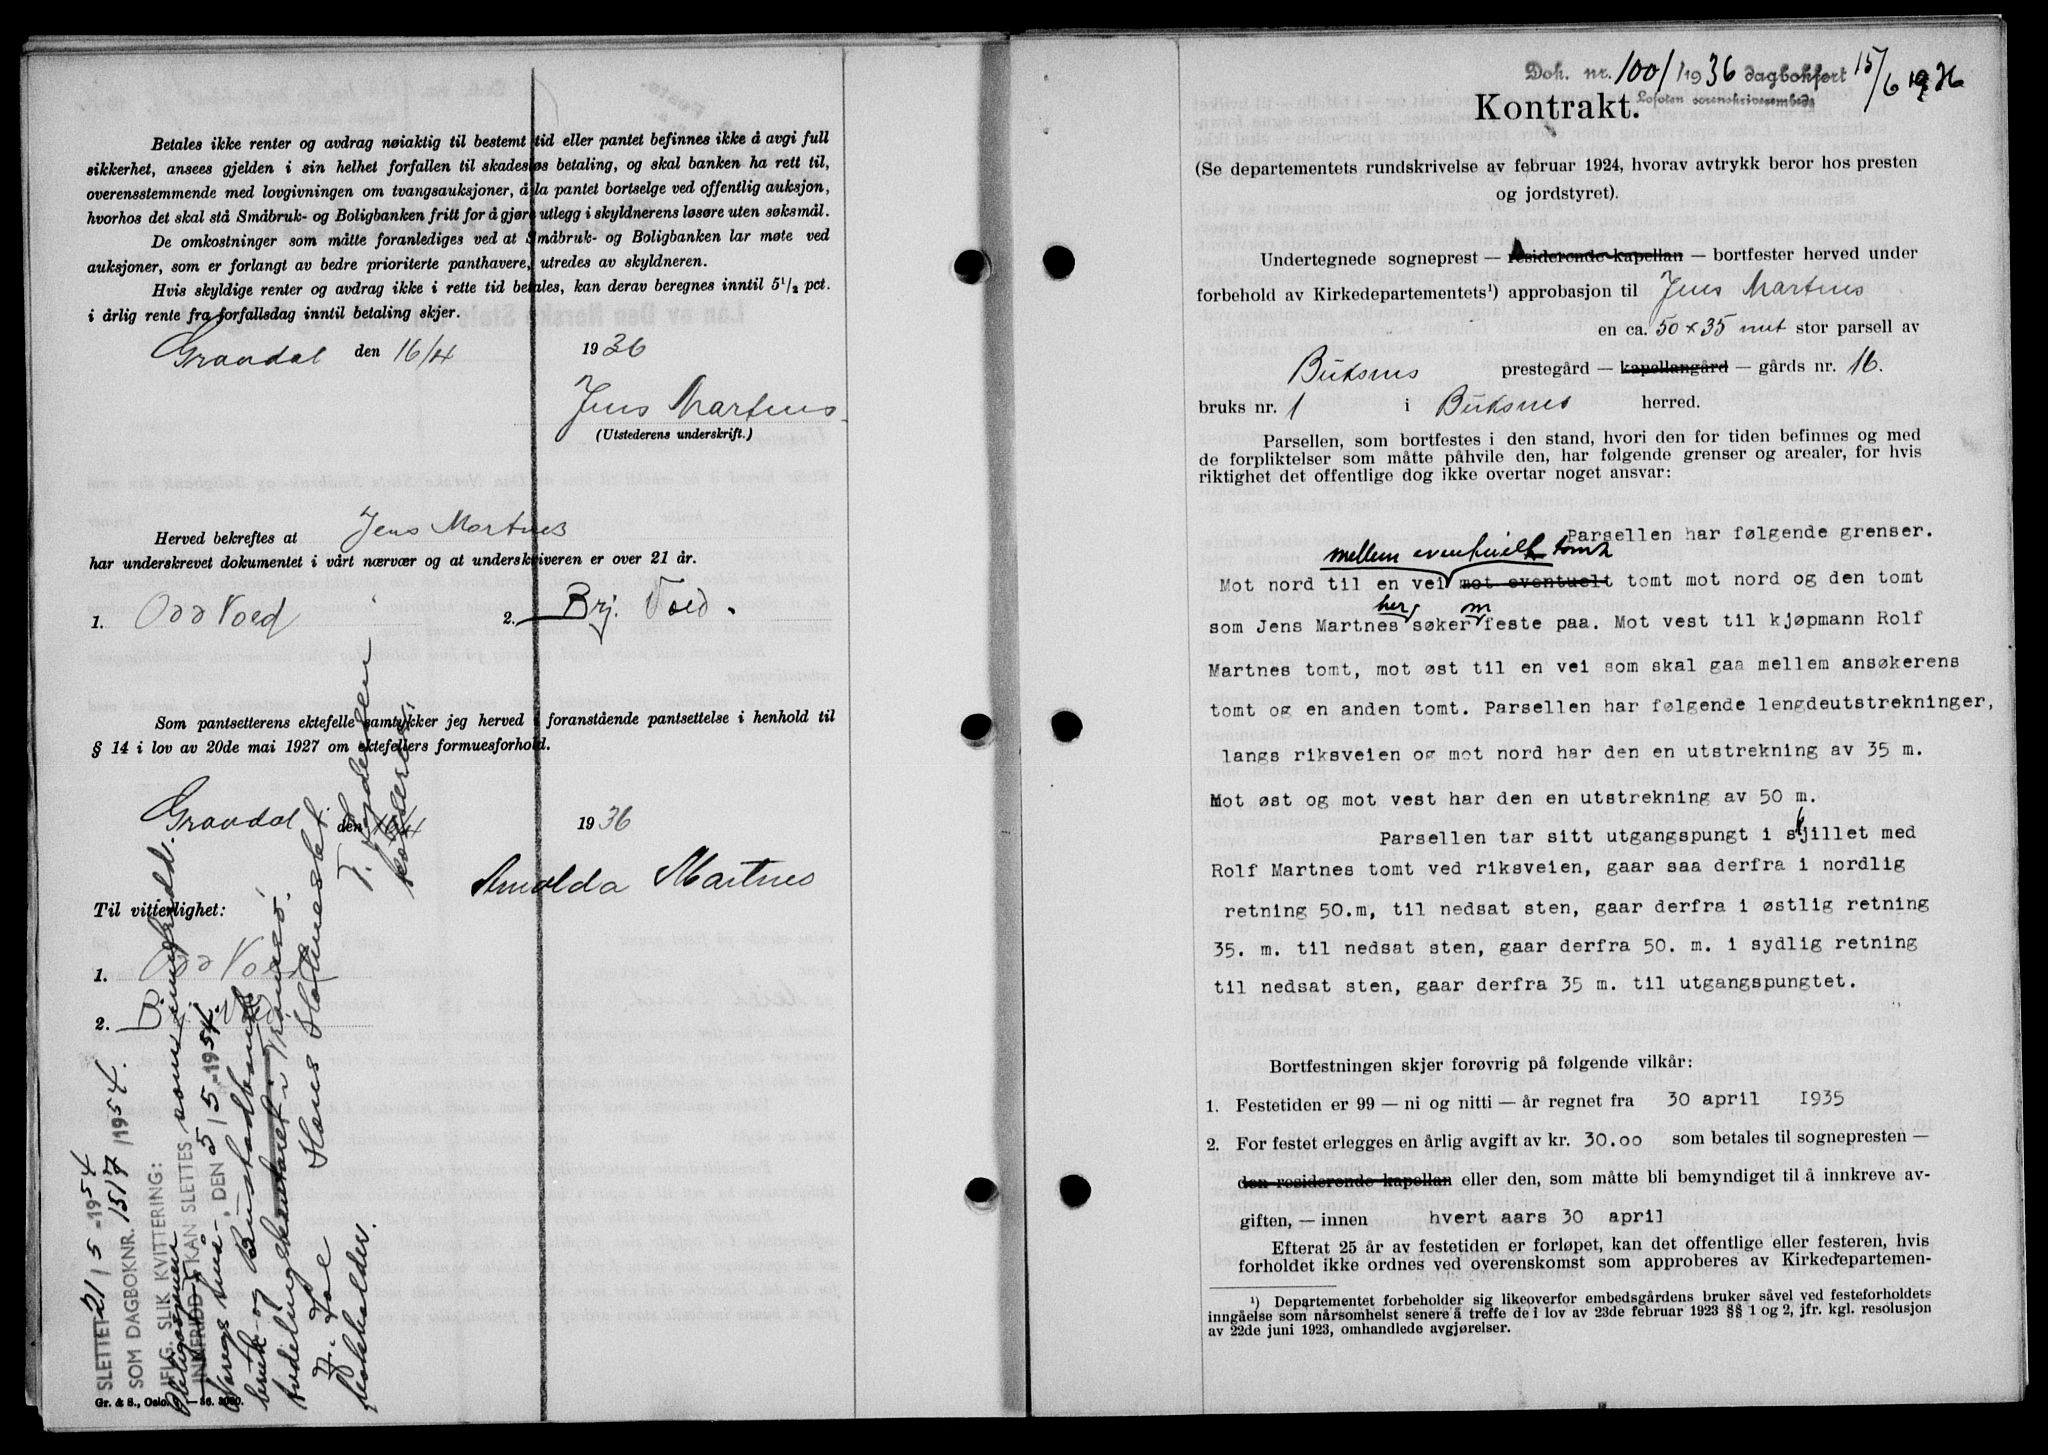 Betales ikke renter og avdrag nøiaktig til bestemt tid eller pantet befinnes ikke å avgi full
sikkerhet, ansees gjelden i sin helhet forfallen til skadesløs betaling, og skal banken ha rett til,
overensstemmende med lovgivningen om tvangsauksjoner, å la pantet bortselge ved offentlig auksjon,
hvorhos det skal stå Småbruk- og Boligbanken fritt for å gjøre utlegg i skyldnerens løsøre uten søksmål.
De omkostninger som måtte foranlediges ved at Småbruk- og Boligbanken lar møte ved
auksjoner, som er forlangt av bedre prioriterte panthavere, utredes av skyldneren.
Hvis skyldige renter og avdrag ikke i rette tid betales, kan derav beregnes inntil 5 1/2 pct.
i årlig rente fra forfallsdag inntil betaling skjer.
Gravdal den 16/4 1936
Jens Martnes
(Utstederens underskrift.)
Herved bekreftes at Jens Martnes
har underskrevet dokumentet i vårt nærvær og at underskriveren er over 21 år.
1. Odd Voed 2. Brj. Voed.
Som pantsetterens ektefelle samtykker jeg herved i foranstående pantsettelse i henhold til
§ 14 i lov av 20de mai 1927 om ektefellers formuesforhold.
Gravdal den 16/4 1936
Arnolda Martnes
Til vitterlighet:
1. Odd Voed
2. Brj. Voed
SLETTET 21/5-1954
SOM DAGBOKNR. 1517/1954.
IFLG. SLIK KVITTERING:
INNFRIDD KAN SLETTES som innfridd.
, DEN 5/5-1954.
Norges Små-
bruk- og Bustadbank
Avdelingskontoret i Tromsø.
Hans
bokholder.
kasserer.
Gr. & S., Oslo. 1—36. 3000.
Dok. nr. 1001/1936 dagbokført 15/6 1936
Lofoten sorenskriverembede
Kontrakt.
(Se departementets rundskrivelse av februar 1924, hvorav avtrykk beror hos presten
og jordstyret).
Undertegnede sogneprest — residerende kapellan — bortfester herved under
forbehold av Kirkedepartementets¹) approbasjon til Jens Martnes
en ca. 50 x 35 met stor parsell av
Buksnes prestegård — kapellangård — gårds nr. 16.
bruks nr. 1 i Buksnes herred.
Parsellen, som bortfestes i den stand, hvori den for tiden befinnes og med
de forpliktelser som måtte påhvile den, har følgende grenser og arealer, for hvis
riktighet det offentlige dog ikke overtar noget ansvar:
Parsellen har følgende grenser.
mellem eventuelt tomt
Mot nord til en vei mot eventuelt tomt mot nord og den tomt
her om
som Jens Martnes søker feste paa. Mot vest til kjøpmann Rolf
Martnes tomt, mot øst til en vei som skal gaa mellem ansøkerens
tomt og en anden tomt. Parsellen har følgende lengdeutstrekninger,
langs riksveien og mot nord har den en utstrekning av 35 m.
Mot øst og mot vest har den en utstrekning av 50 m.
Parsellen tar sitt utgangspungt i skillet med
Rolf Martnes tomt ved riksveien, gaar saa derfra i nordlig
retning 50.m, til nedsat sten, gaar derfra i østlig retning
35. m. til nedsat sten, gaar derfra 50. m. i sydlig retning
til nedsat sten, gaar derfra 35 m. til utgangspungtet.
Bortfestningen skjer forøvrig på følgende vilkår:
1. Festetiden er 99 — ni og nitti — år regnet fra 30 april 1935
2. For festet erlegges en årlig avgift av kr. 30.00 som betales til sognepresten —
den residerende kapellan eller den, som måtte bli bemyndiget til å innkreve av-
giften, — innen hvert aars 30 april
Efterat 25 år av festetiden er forløpet, kan det offentlige eller festeren, hvis
forholdet ikke ordnes ved overenskomst som approberes av Kirkedepartemen-
¹) Departementet forbeholder sig likeoverfor embedsgårdens bruker såvel ved festeforholdets
inngåelse som nårsomhelst senere å treffe de i lov av 23de februar 1923 §§ 1 og 2, jfr. kgl. resolusjon
av 22de juni 1923, omhandlede avgjørelser.